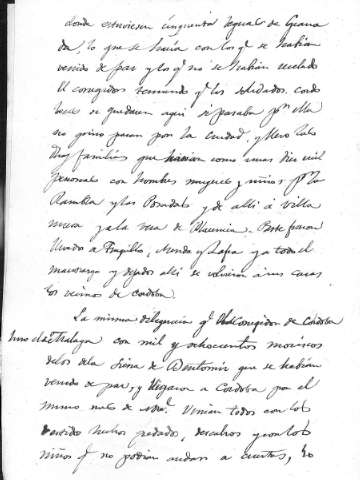 donde estuviesen cinquenta leguas de Grana
da, lo que se hacia con los q.e se habian
venido de paz y los q.e no se habian revelado
El corregidor temiendo q.e los soldados cordo
beses se quedasen aqui si pasaba p.r ella
no quiso pasar por la ciudad, y llevó las
familias que hacian como unas diez mil
personas con hombres mugeres y niños p.r la
Rambla y las Posadas y de alli á Villa
nueva y a la vera de Plasencia. Parte fueron
llevados á Trugillo, Merida y Zafra y a todo el
maestrazgo y dejados alli se volvieron á sus casas
los vecinos de cordoba.
La misma diligencia q.e el Corregidor de Cordoba
hizo el de Malaga con mil y ochocientos moriscos
de los de la Sierra de Bentomiz que se habian
venido de paz, y llegaron a Cordoba por el
mismo mes de Venian todos con los
vestidos hechos pedazos, descalzos y con los
niños q.e no podian andar a cuestas, lo